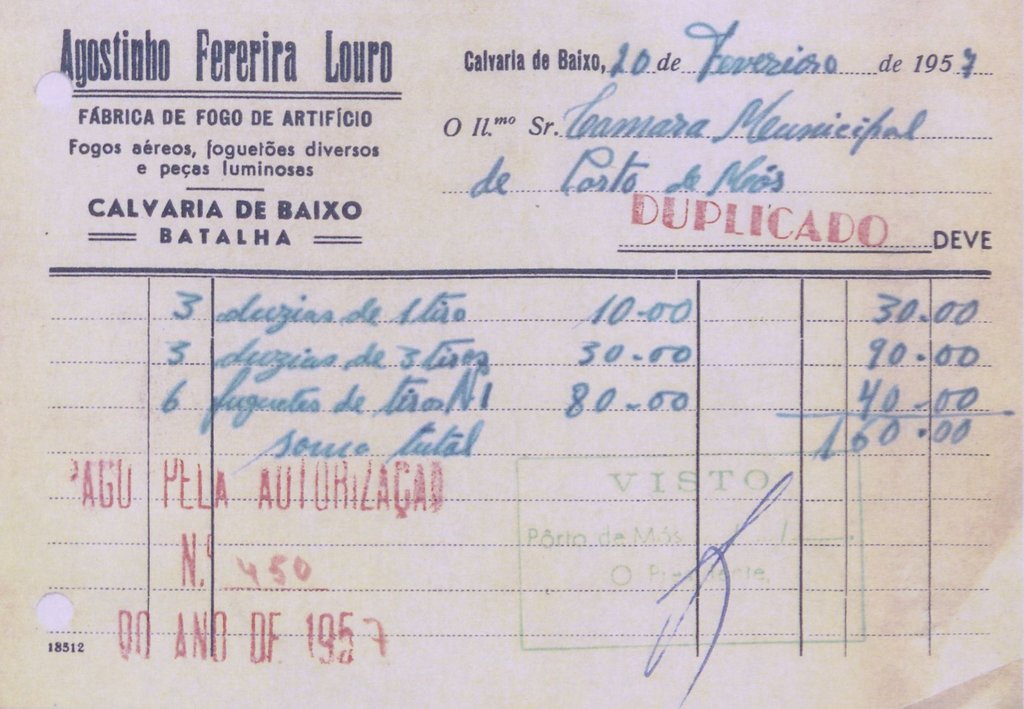 Agostinho Fererira Louro
FÁBRICA DE FOGO DE ARTIFÍCIO
Fogos aéreos, foguetões diversos
e peças luminosas
CALVARIA DE BAIXO
BATALHA
Calvaria de Baixo, 20 de Fevereiro de 1957
O Il.mo Sr. Camara Municipal
de Porto de Mós
DUPLICADO DEVE
3 duzias de 1 tiro 10-00 30-00
3 duzias de 3 tiros 30-00 90-00
6 fuguetes de tiros N1 80-00 40-00
soma tutal 160-00
PAGO PELA AUTORIZAÇÃO
N.º 450
DO ANO DE 1957
VISTO
Pôrto de Mós
O Presidente,
18512